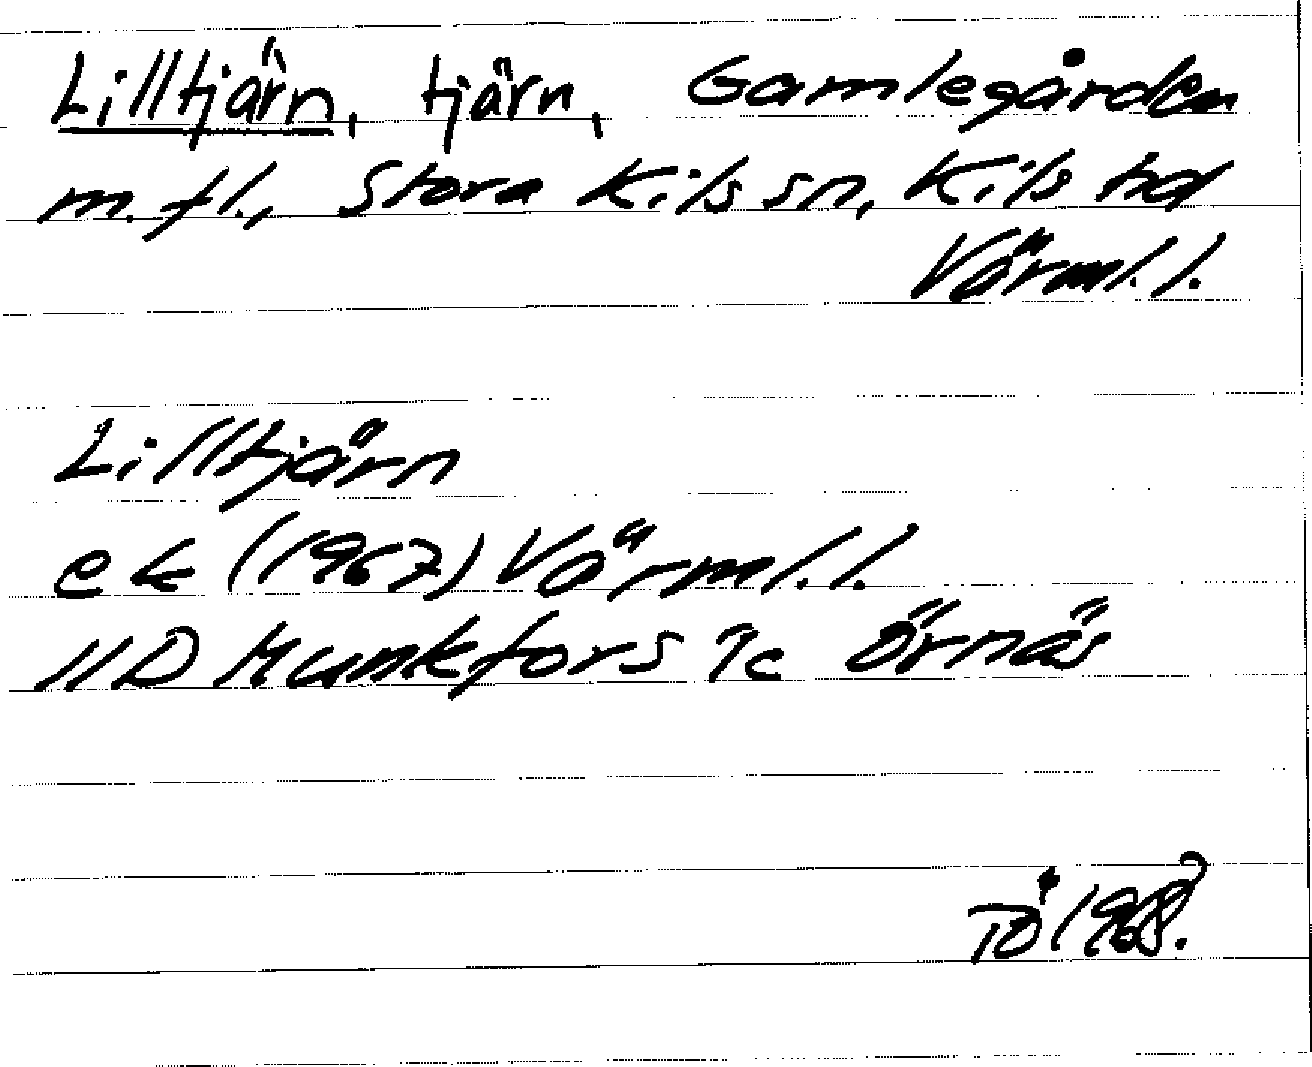 Lilltjärn, tjärn, Gamlegården
m. fl., Stora Kils sn, Kils hd
Värml. l.
Lilltjärn
ek (1967) Värml. l.
11D Munkfors 7c Örnäs
TÖ 1968.